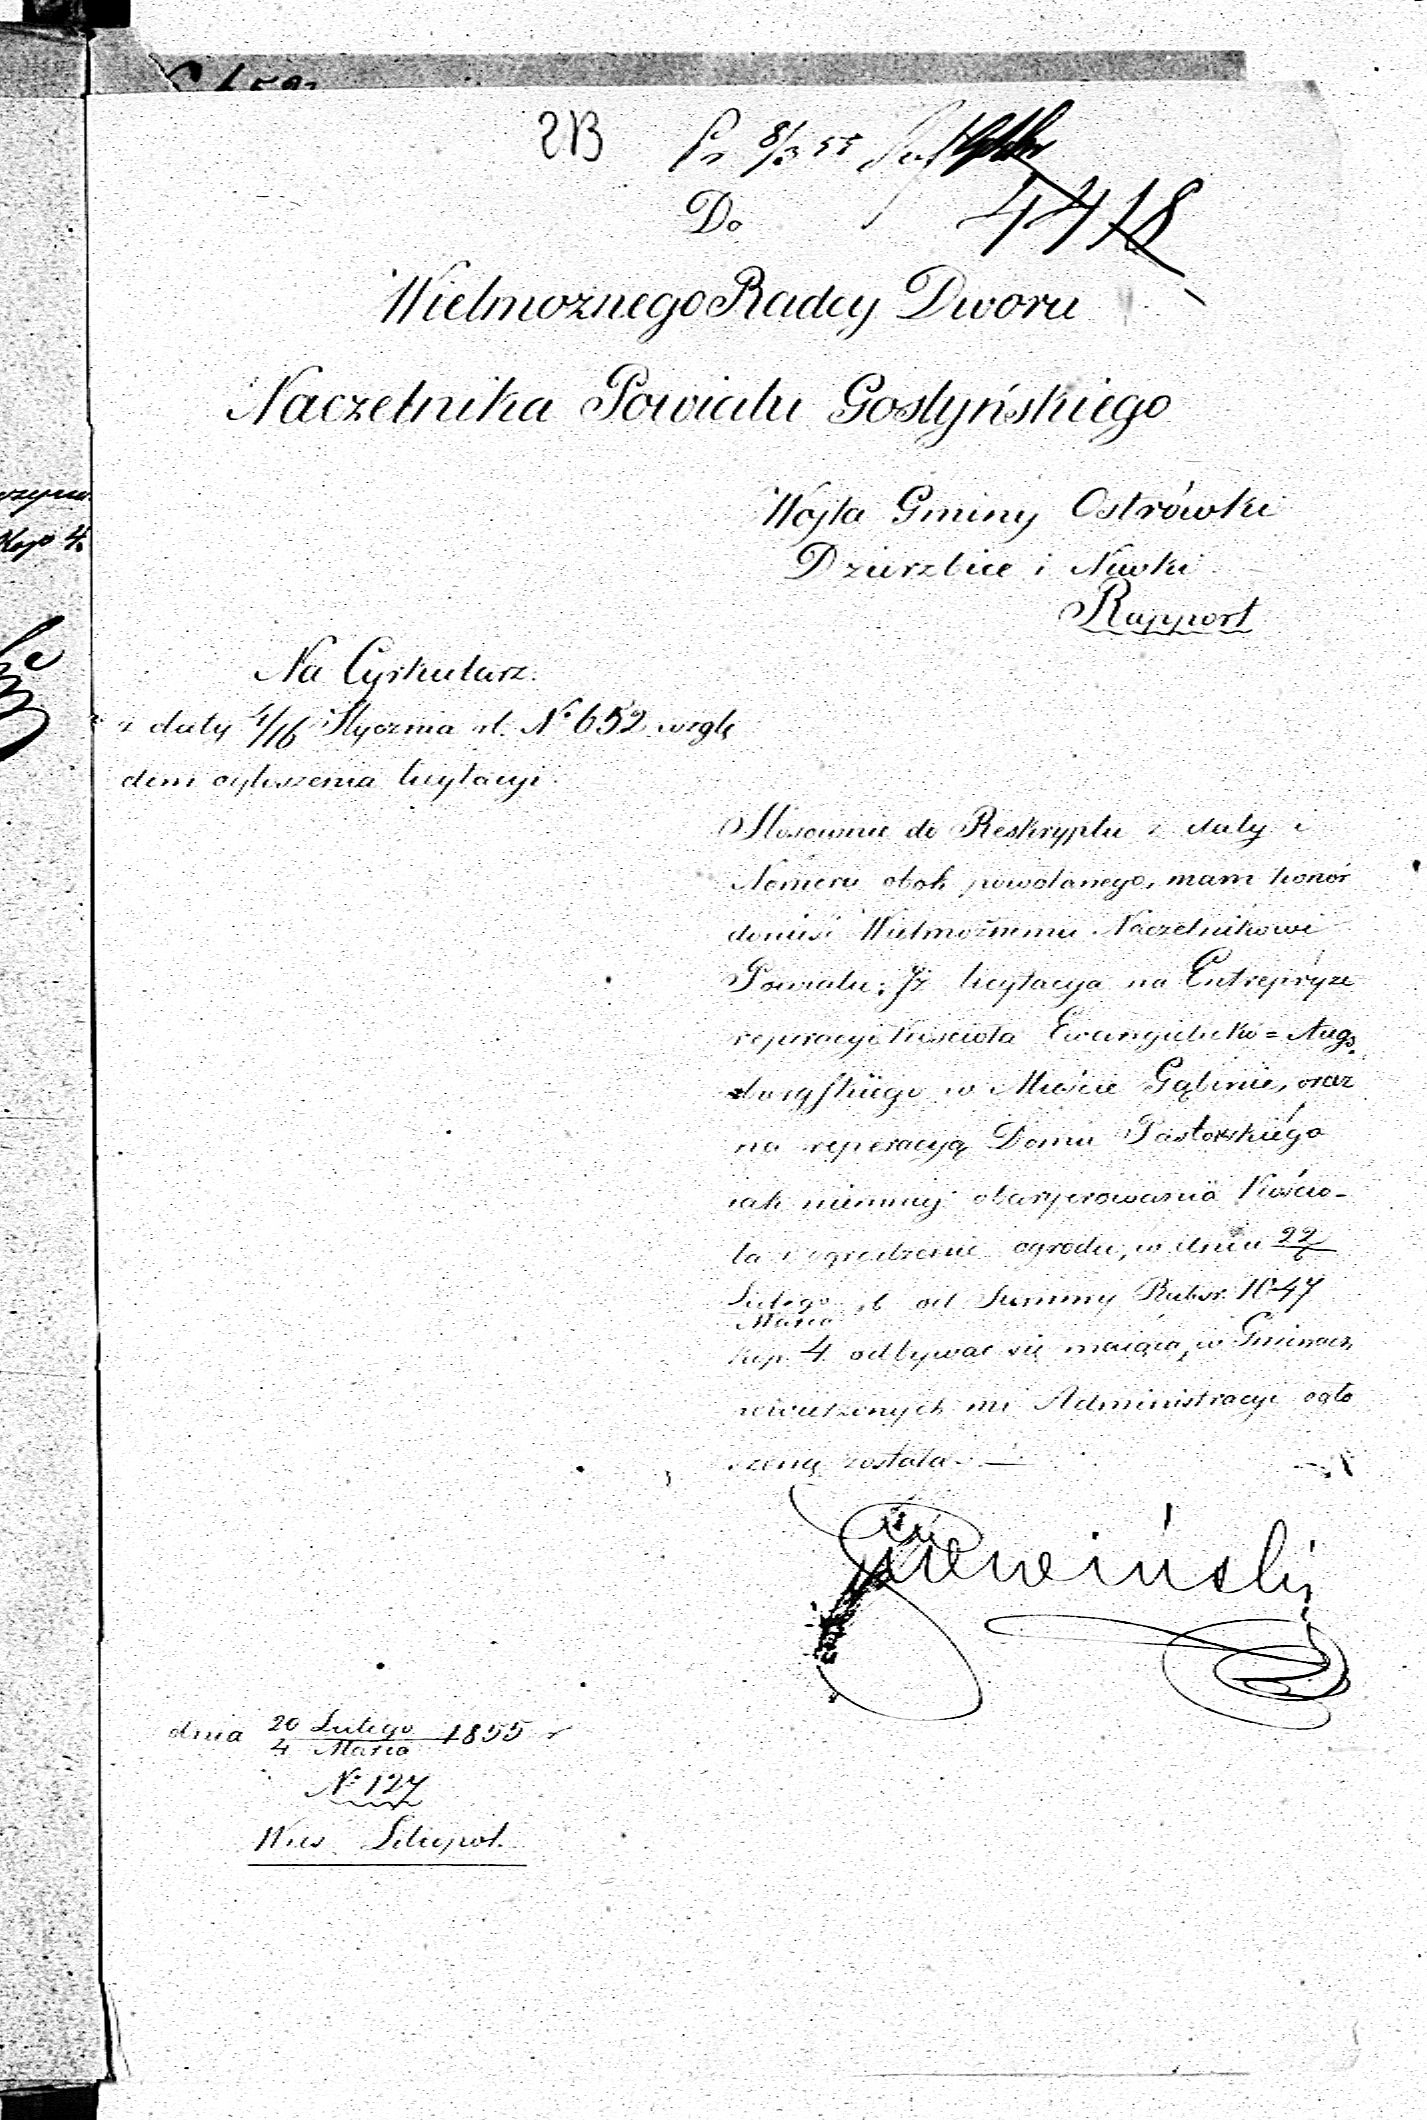 213 Pr 8/3 55
4418
Do
Wielmożnego Radcy Dworu
Naczelnika Powiatu Gostyńskiego
Wójta Gminy Ostrówki
Dzierzbice i Niwki
Rapport
Na Cyrkularz
z daty 4/16 Stycznia rb. No 652 wzglę
dem ogłoszenia licytacyi
Stosownie do Reskryptu z daty i
Nomeru obok powołanego, mam honór
donieść Wielmożnemu Naczelnikowi
Powiatu, Iż licytacya na Entrepryze
reperacyi Kościoła Ewangielicko = Augs
burgskiego w Mieście Gąbinie, oraz
na reperacyą Domu Pastorskiego
iak niemniej oparkanowania Kościo-
ła i ogrodzenie ogrodu, w dniu 22/6
Lutego/Marca rb od Summy Rubsr. 1047
kop. 4 odbywać się maiąca, w Gminach
powierzonych mi Administracyi ogło
szoną została. —
dnia 20 Lutego/4 Marca 1855 r
No 127
Wieś